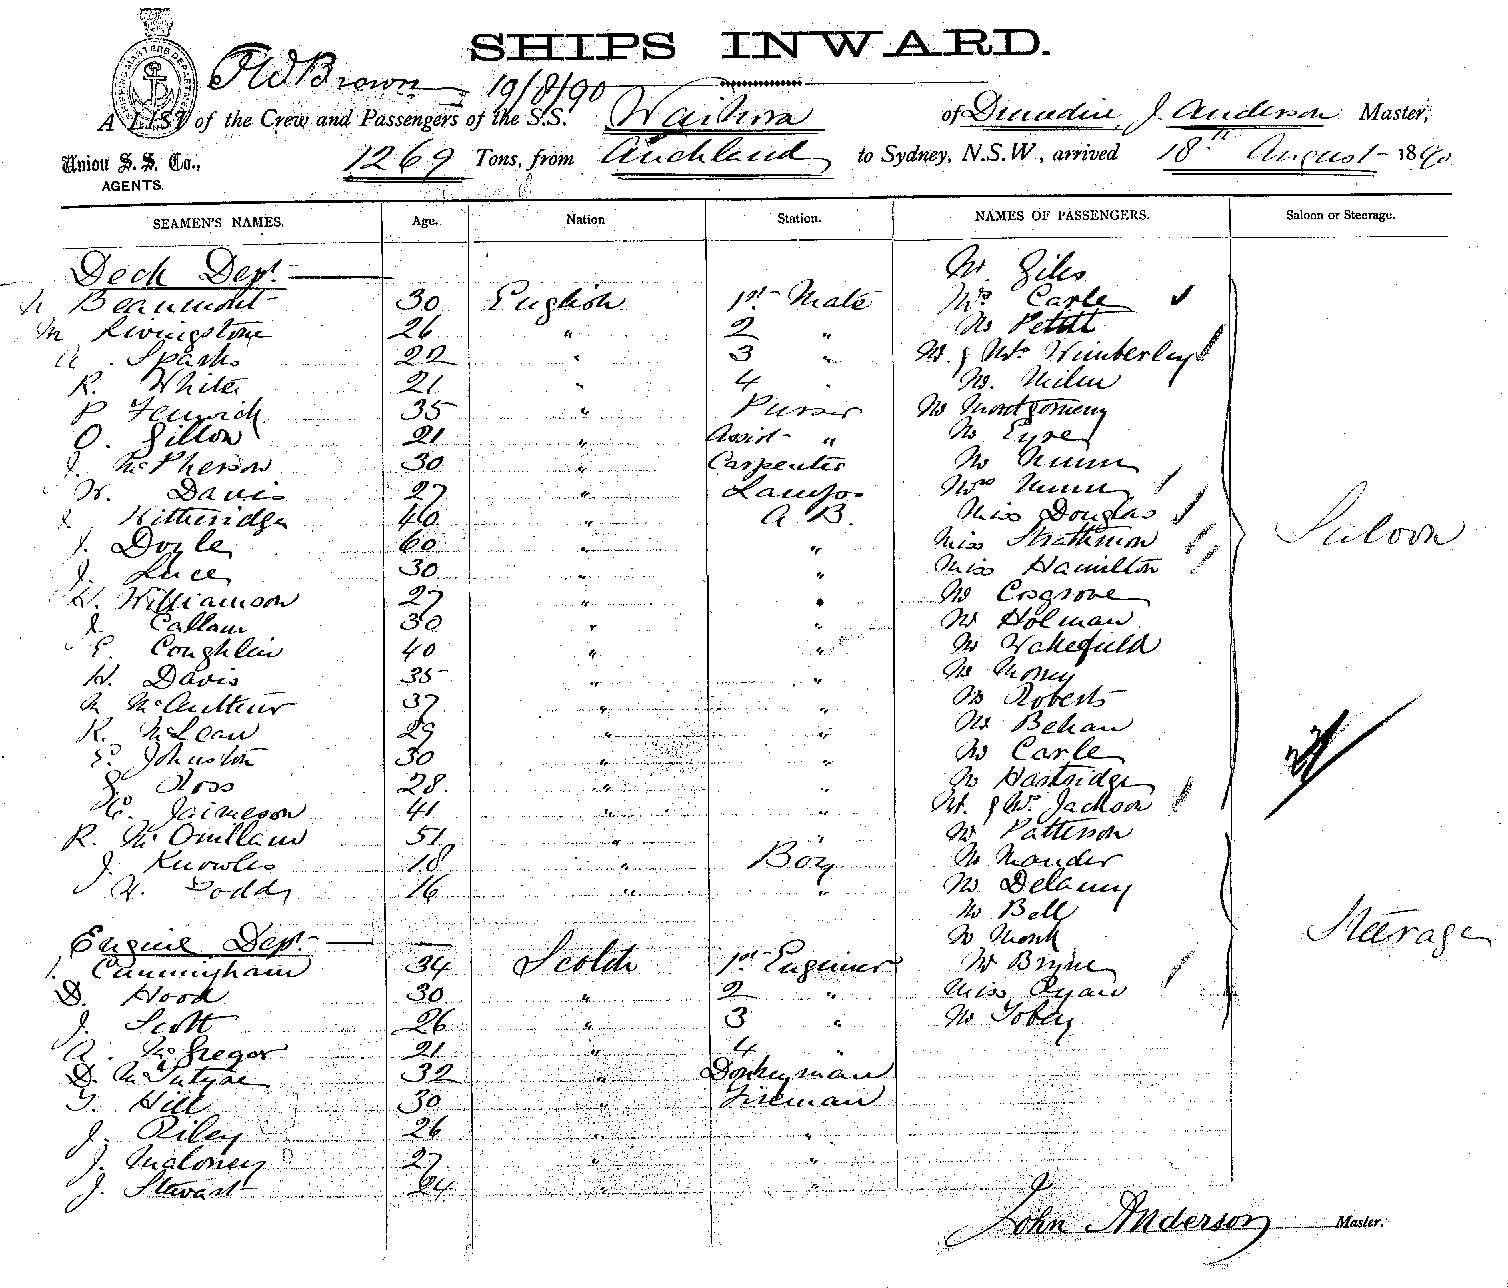 SHIPS INWARD.
JW Brown 19/8/90
A LIST of the Crew and Passengers of the S.S. Waihora of Dunedin, J. Anderson Master,
Union S. S. Co., AGENTS. 1269 Tons, from Auckland to Sydney, N.S.W., arrived 18th August 1890
SEAMEN'S NAMES. Age. Nation Station. NAMES OF PASSENGERS. Saloon or Steerage.
Deck Dept. Mr Giles
Beaumont 30 English 1st Mate Mrs Carle
M Livingstone 26 " 2 " Mr Pettit
A. Sparks 22 " 3 " Mr. & Mrs Wimberley
R. White 21 " 4 " Mr. Milne
P Fenwick 35 " Purser Mr Montgomery
O. Gillon 21 " Assist " Mr Eyre
J. McPherson 30 " Carpenter Mr Nunn
W. Davis 27 " Lamps Mrs Nunn
Kitheridge 40 " A B. Miss Douglas Saloon
J. Doyle 60 " " Miss Strathmon
J. Luce 30 " " Miss Hamilton
W. Williamson 27 " " Mr Cosgrove
J. Callam 30 " " Mr Holman
E. Coughlin 40 " " Mr Wakefield
H. Davis 35 " " Mr Money
M McArthur 37 " " Mr Roberts
R. McLean 29 " " Mr Behan
E. Johnston 30 " " Mr Carle
Ross 28 " " Mr Hastridge
E. Jaimeson 41 " " Mr. & Mrs Jackson
R. McQuillam 51 " " Mr Patterson
J. Knowles 18 " Boy Mr Mander
W. Dodds 16 " " Mr Delaney
Mr Bell
Engine Dept. Mr Monk Steerage
Cunningham 34 Scotch 1st Engineer Mr Bryne
D. Hood 30 " 2 " Miss Ryan
J. Scott 26 " 3 " Mr Tobey
A. McGregor 21 " 4 "
D. McIntyre 32 " Donkeyman
G. Hill 30 " Fireman
J. Riley 26 " "
J. Maloney 27 " "
J. Stewart 24 " "
John Anderson Master.